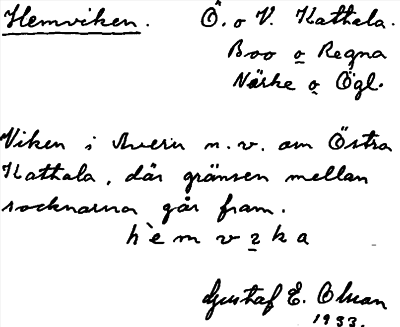 Hemviken. Ö. o V. Kattala.
Boo o Regna
Närke o Ögl.
Viken i Avern n.v. om Östra
Kattala, där gränsen mellan
socknarna går fram.
h`e m v ı k a
Gustaf E. Olsson
1933.